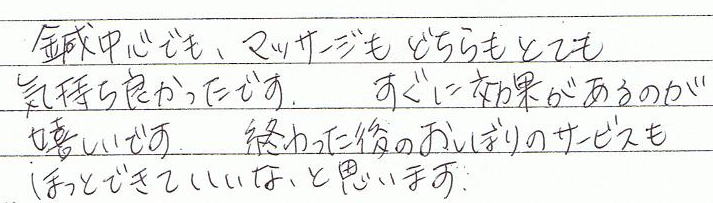 鍼中心でも、マッサージもどちらもとても
気持ち良かったです. すぐに効果があるのが
嬉しいです. 終わった後のおしぼりのサービスも
ほっとできていいな、と思います.